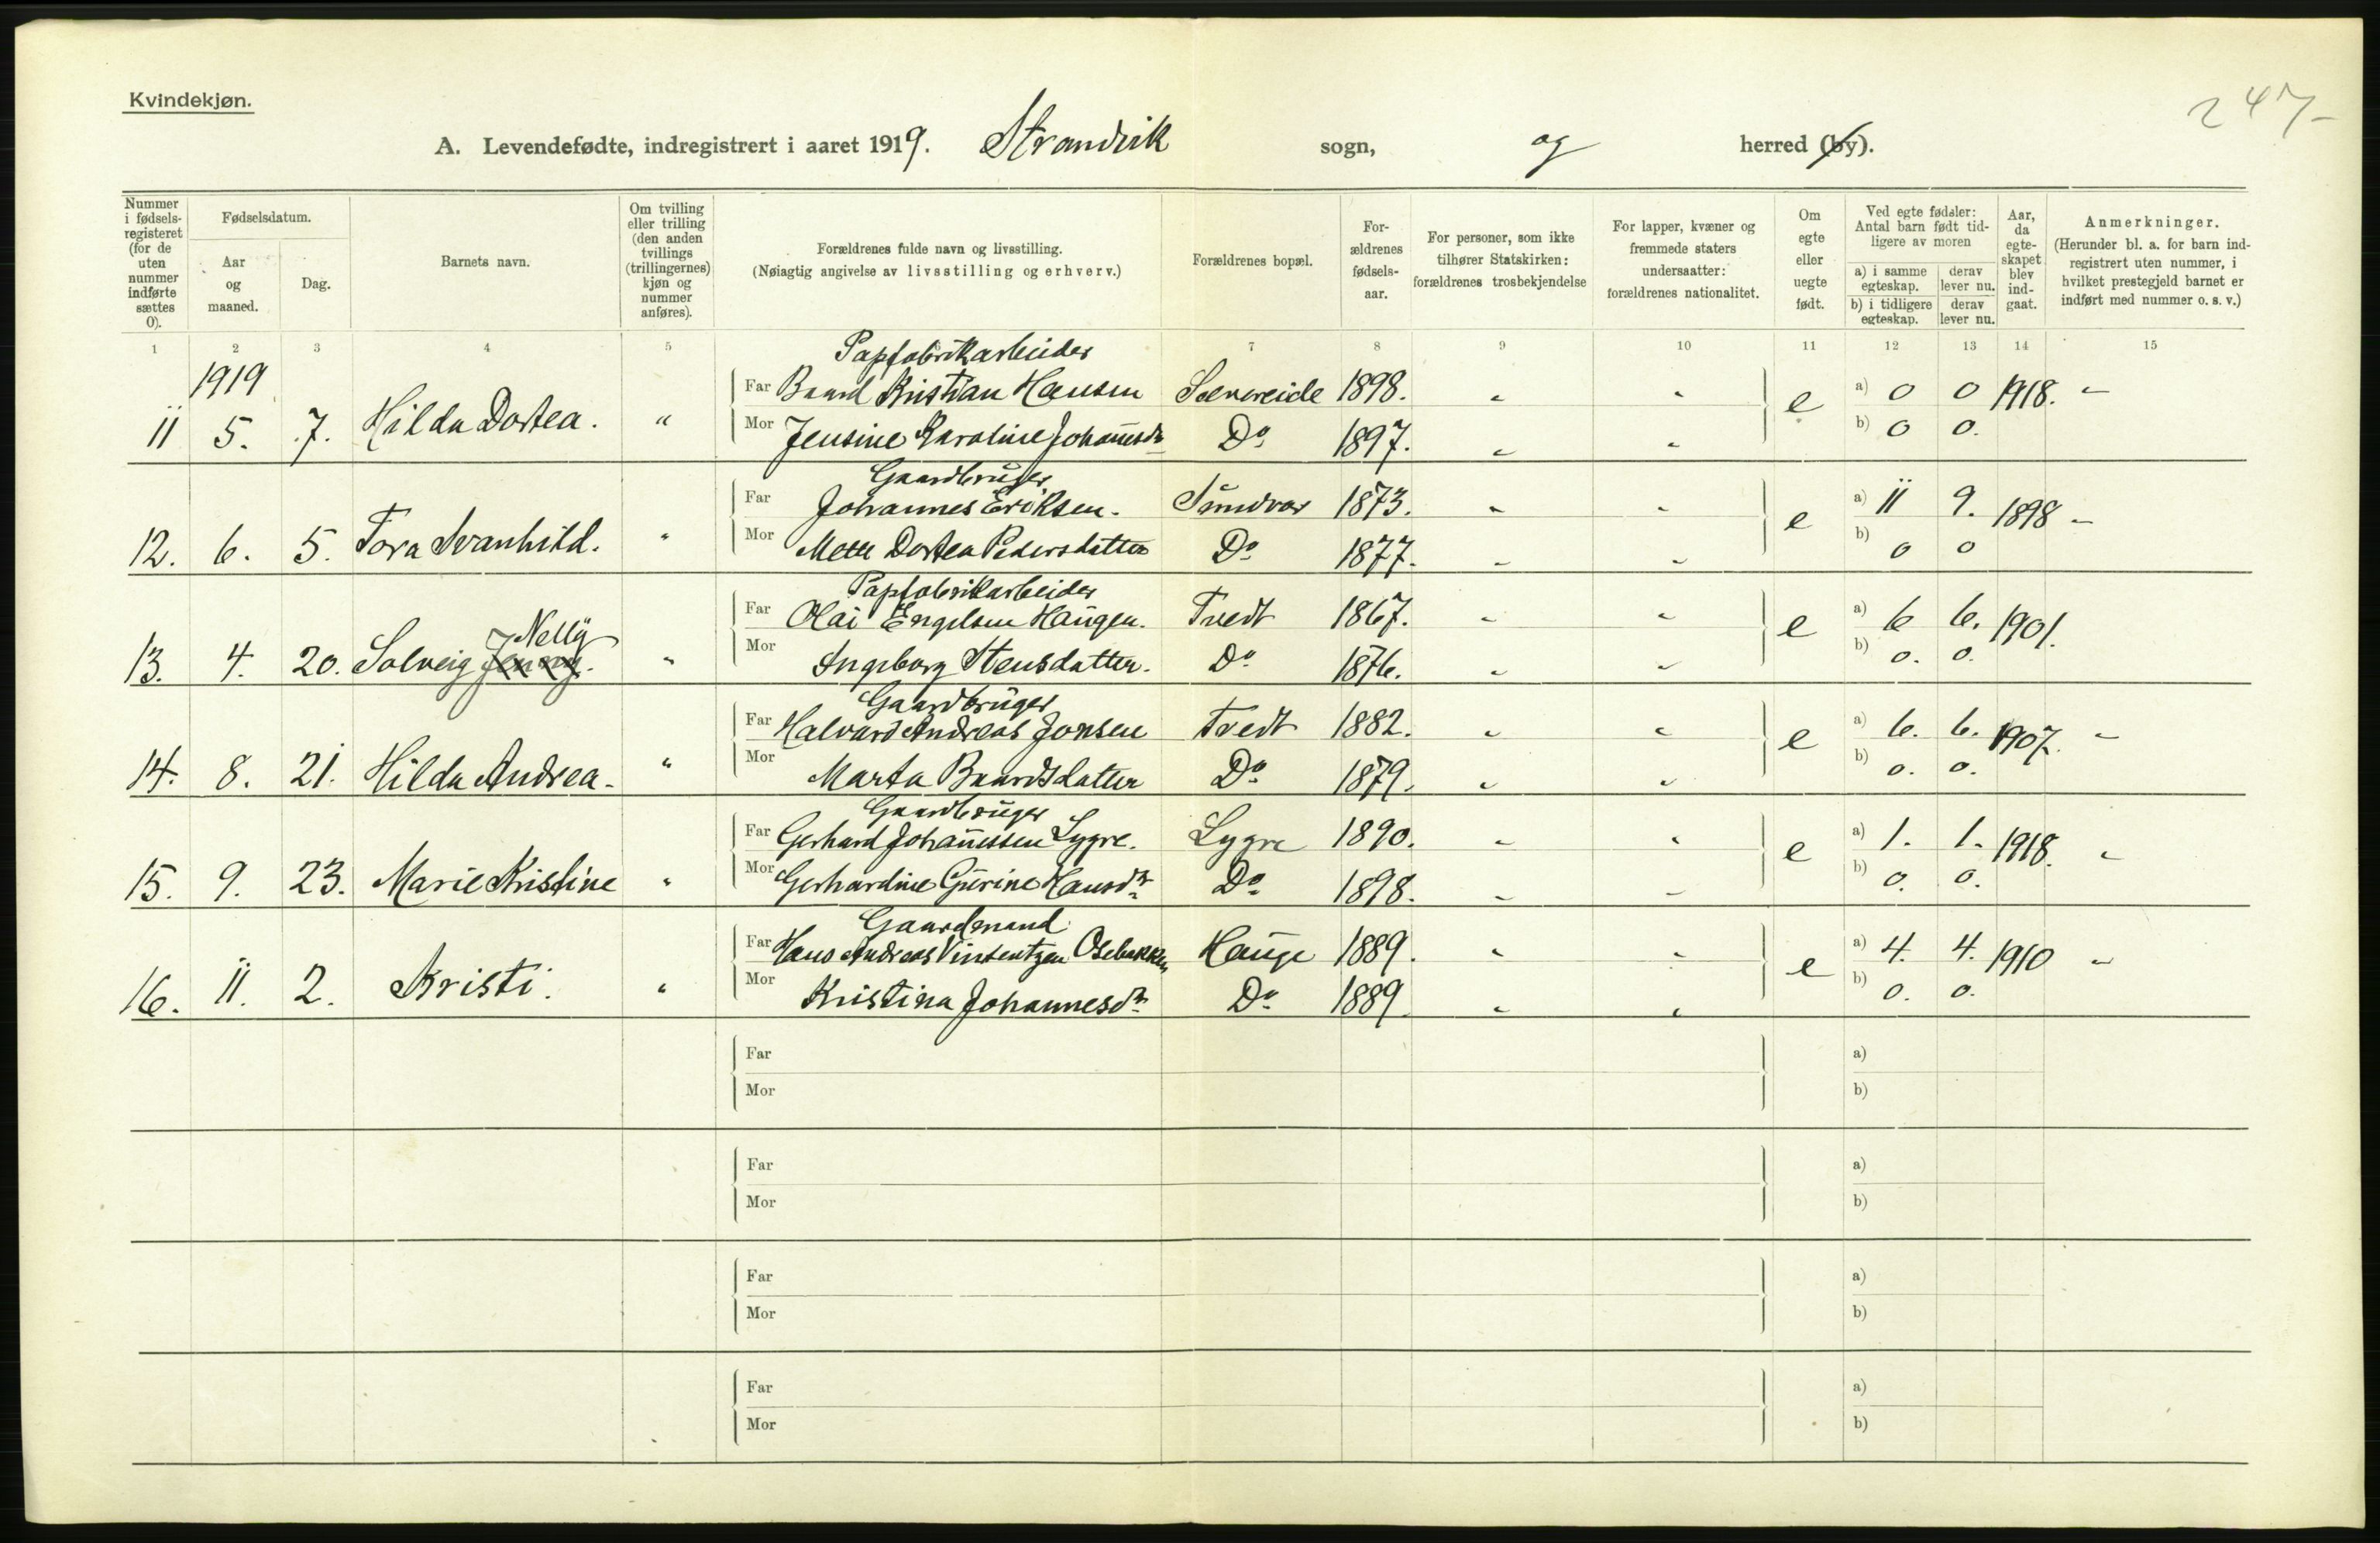 Kvindekjøn.
247-
A. Levendefødte, indregistrert i aaret 1919. Strandvik sogn, og herred (by).
Nummer i fødselsregisteret (for de uten nummer indførte sættes 0).
Fødselsdatum.
Aar og maaned.
Dag.
Barnets navn.
Om tvilling eller trilling (den anden tvillings (trillingernes) kjøn og nummer anføres).
Forældrenes fulde navn og livsstilling.
(Nøiagtig angivelse av livsstilling og erhverv.)
Forældrenes bopæl.
Forældrenes fødselsaar.
For personer, som ikke tilhører Statskirken: forældrenes trosbekjendelse
For lapper, kvæner og fremmede staters undersaatter: forældrenes nationalitet.
Om egte eller uegte født.
Ved egte fødsler: Antal barn født tidligere av moren
a) i samme egteskap. derav lever nu.
b) i tidligere egteskap. derav lever nu.
Aar, da egteskapet blev indgaat.
Anmerkninger.
(Herunder bl. a. for barn indregistrert uten nummer, i hvilket prestegjeld barnet er indført med nummer o. s. v.)
1 2 3 4 5 6 7 8 9 10 11 12 13 14 15
1919
Papfabrikarbeider
Far Baard Kristian Hansen Sævareide 1898. " " e a) 0 0 1918. "
11 5. 7. Hilda Dortea. "
Mor Jensine Karoline Johannesdr Do 1897. " " b) 0 0.
Gaardbruger
Far Johannes Eriksen. Sundvor 1873. " " e a) 11 9. 1898 "
12. 6. 5. Tora Svanhild. "
Mor Mette Dortea Pedersdatter Do 1877. " " b) 0 0
Papfabrikarbeider
Far Olai Engelsen Haugen. Tvedt 1867. " " e a) 6 6. 1901.
Nelly
13. 4. 20. Solveig Jenny. "
Mor Ingeborg Stensdatter. Do 1876. " " b) 0. 0.
Gaardbruger
Far Halvard Andreas Jonsen Tvedt 1882. " " e a) 6. 6. 1907. "
14. 8. 21. Hilda Andrea. "
Mor Marta Baardsdatter Do 1879. " " b) 0. 0.
Gaardbruger
Far Gerhard Johannessen Lygre. Lygre 1890. " " e a) 1. 1. 1918. "
15. 9. 23. Marie Kristine "
Mor Gerhardine Gurine Hansdr Do 1898. " " b) 0. 0.
Gaardmand
Far Hans Andreas Vinsentzen Osebakken Hauge 1889. " " e a) 4. 4. 1910 "
16. 11. 2. Kristi. "
Mor Kristina Johannesdr Do 1889. " " b) 0. 0.
Far a)
Mor b)
Far a)
Mor b)
Far a)
Mor b)
Far a)
Mor b)